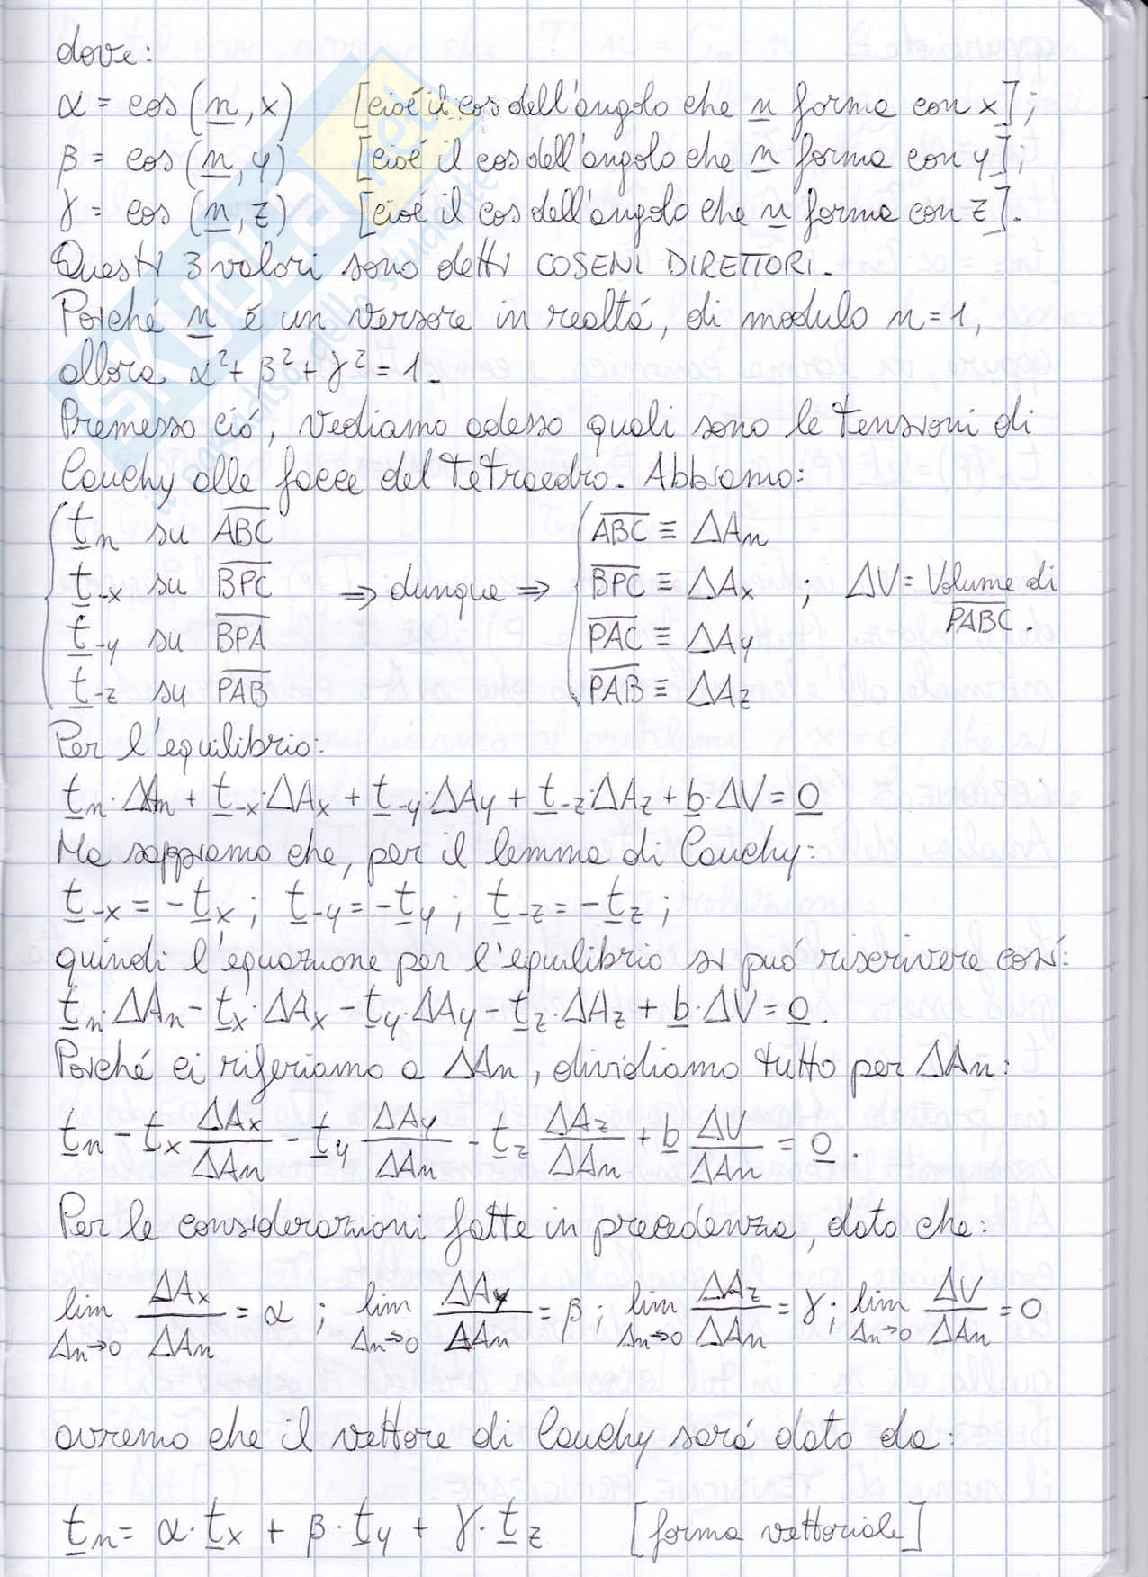 dove:
α = cos(n, x) [cioé il cos dell'angolo che n forma con x];
β = cos(n, y) [cioé il cos dell'angolo che n forma con y];
γ = cos(n, z) [cioé il cos dell'angolo che n forma con z].
Questi 3 valori sono detti COSENI DIRETTORI.
Poiché n é un versore in realtá, di modulo n=1,
allora α²+β²+γ²=1.
Premesso ció, vediamo adesso quali sono le tensioni di
Cauchy alle facce del tetraedro. Abbiamo:
t̲n su A̅B̅C̅ A̅B̅C̅ ≡ ΔAn
t̲-x su B̅P̅C̅ ⇒ dunque ⇒ B̅P̅C̅ ≡ ΔAx ; ΔV = Volume di
t̲-y su B̅P̅A̅ P̅A̅C̅ ≡ ΔAy P̅A̅B̅C̅.
t̲-z su P̅A̅B̅ P̅A̅B̅ ≡ ΔAz
Per l'equilibrio:
t̲n·ΔAn + t̲-x·ΔAx + t̲-y·ΔAy + t̲-z·ΔAz + b̲·ΔV = 0̲
Ma sappiamo che, per il lemma di Cauchy:
t̲-x = -t̲x ; t̲-y = -t̲y ; t̲-z = -t̲z ;
quindi l'equazione per l'equilibrio si puó riscrivere cosí:
t̲n·ΔAn - t̲x·ΔAx - t̲y·ΔAy - t̲z·ΔAz + b̲·ΔV = 0̲.
Poiché ci riferiamo a ΔAn, dividiamo tutto per ΔAn:
t̲n - t̲x ΔAx/ΔAn - t̲y ΔAy/ΔAn - t̲z ΔAz/ΔAn + b̲ ΔV/ΔAn = 0̲.
Per le considerazioni fatte in precedenza, dato che:
lim Δn→0 ΔAx/ΔAn = α ; lim Δn→0 ΔAy/ΔAn = β ; lim Δn→0 ΔAz/ΔAn = γ ; lim Δn→0 ΔV/ΔAn = 0
avremo che il vettore di Cauchy sará dato da:
t̲n = α·t̲x + β·t̲y + γ·t̲z [forma vettoriale]